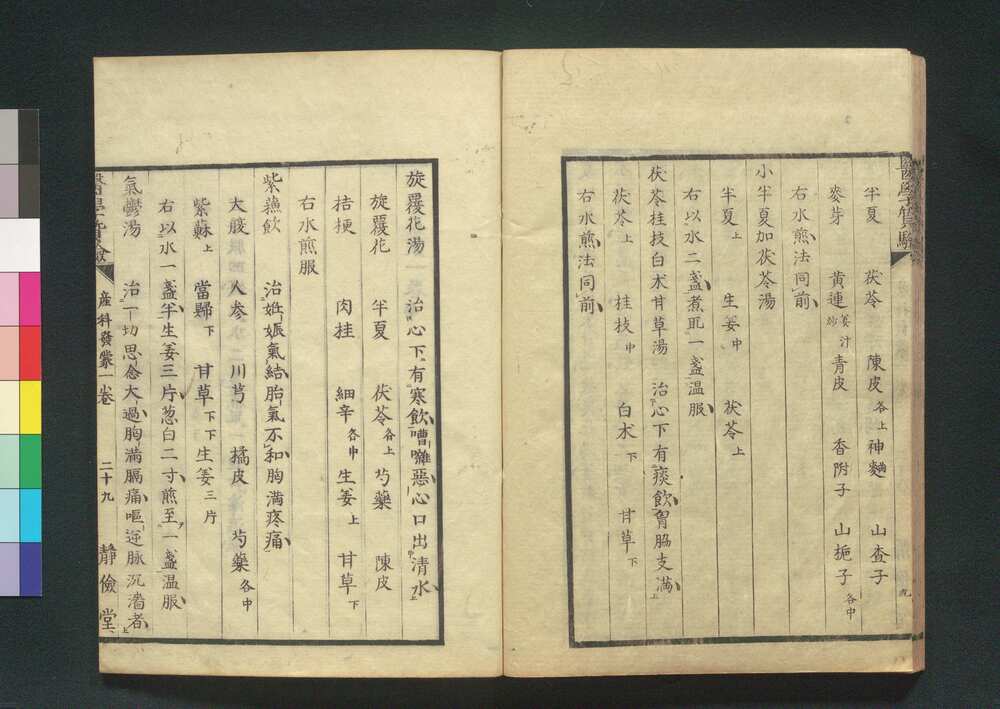 半夏 茯苓 陳皮各上 神麯 山査子
麥芽 黄連姜汁炒 青皮 香附子 山梔子各中
右水煎法同前
小半夏加茯苓湯
半夏上 生姜中 茯苓上
右以水二盞煮取一盞温服
茯苓桂技白朮甘草湯 治心下有痰飲胷脇支満
茯苓上 桂技中 白朮下 甘草下
右水煎法同前
旋覆花湯 治心下有寒飲嘈囃惡心口出清水
旋覆花 半夏 茯苓各上 芍藥 陳皮
桔梗 肉桂 細辛各中 生姜上 甘草下
右水煎服
紫蘓飲 治姙娠氣結胎氣不和胸満疼痛
大腹 人參 川芎 橘皮 芍藥各中
紫蘓上 當歸下 甘草下下 生姜三片
右以水一盞半生姜三片葱白二寸煎至一盞温服
氣鬱湯 治一切思念大過胸満膈痛嘔逆脉沉濇者
産科發蒙一卷 二十九 靜儉堂